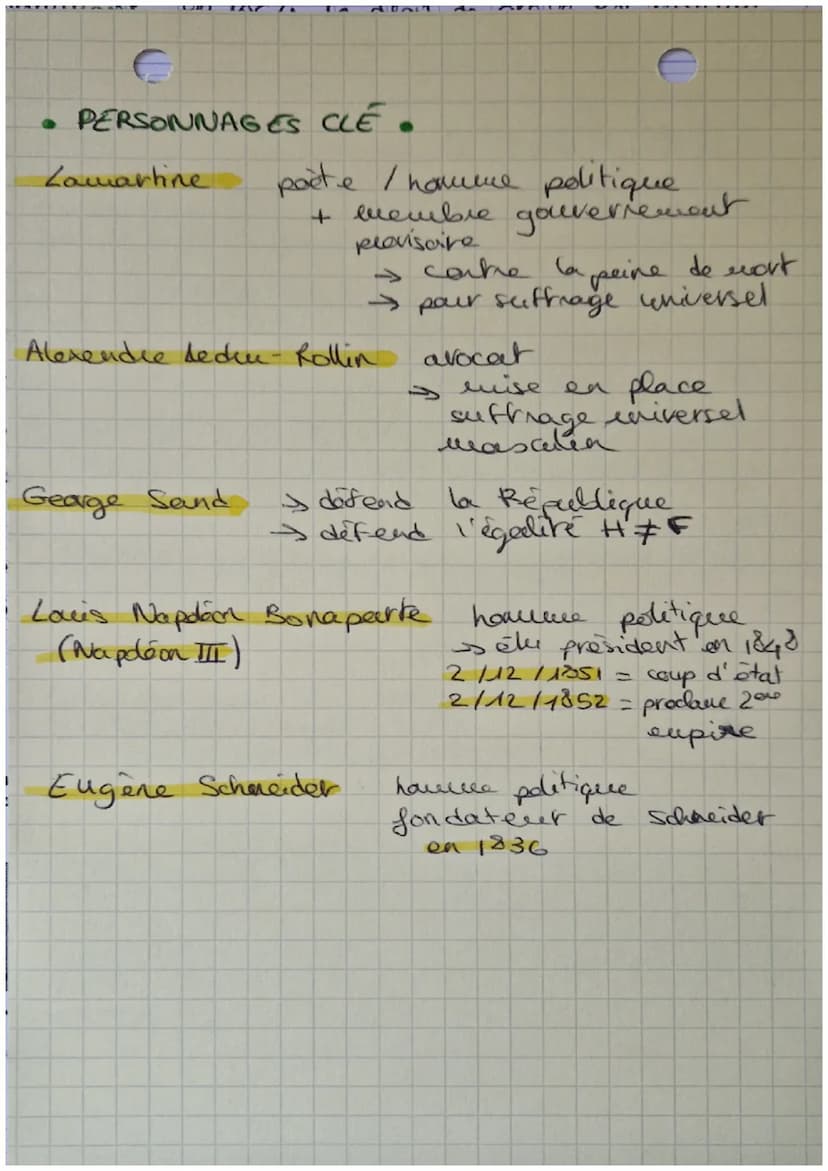 • PERSONNAGES CLÉ •
Lamartine poète / homme politique
+ membre gouvernement
provisoire
→ contre la peine de mort
→ pour suffrage universel
Alexandre Ledru-Rollin avocat
→ mise en place
suffrage universel
masculin
George Sand → défend la République
→ défend l'égalité H ≠ F
Louis Napoléon Bonaparte homme politique
(Napoléon III) → élu président en 1848
2/12/1851 = coup d'état
2/12/1852 = proclame 2ème
empire
Eugène Schneider homme politique
fondateur de Schneider
en 1836